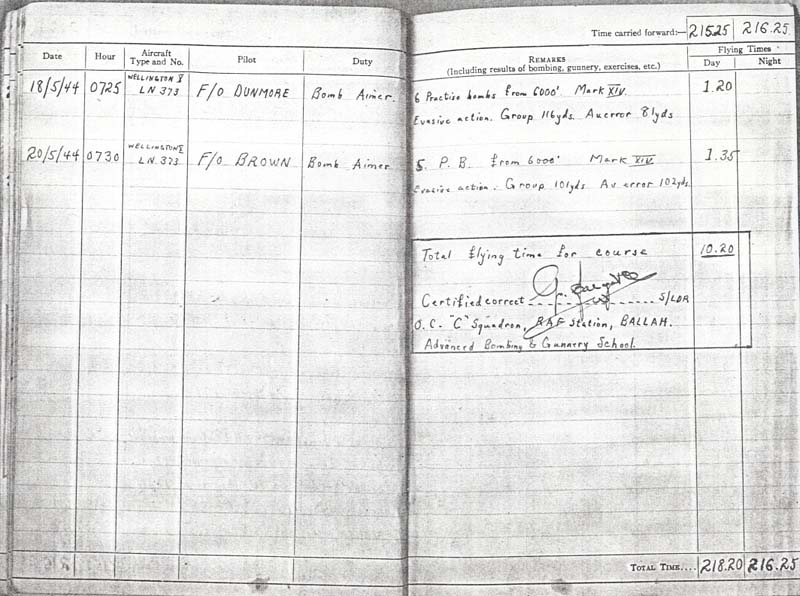 Time carried forward:— 215.25 216.25
Date Hour Aircraft Type and No. Pilot Duty REMARKS (Including results of bombing, gunnery, exercises, etc.) Flying Times Day Night
18/5/44 0725 WELLINGTON X LN 373 F/O DUNMORE Bomb Aimer. 6 Practise bombs from 6000' Mark XIV. 1.20
Evasive action. Group 116yds. Av error 81yds
20/5/44 0730 WELLINGTON X LN 373 F/O BROWN Bomb Aimer 5. P. B. from 6000' Mark XIV. 1.35
Evasive action. Group 101yds. Av error 102yds.
Total flying time for course 10.20
Certified correct S/LDR
O.C. "C" Squadron, RAF Station, BALLAH.
Advanced Bombing & Gunnery School.
TOTAL TIME.... 218.20 216.25